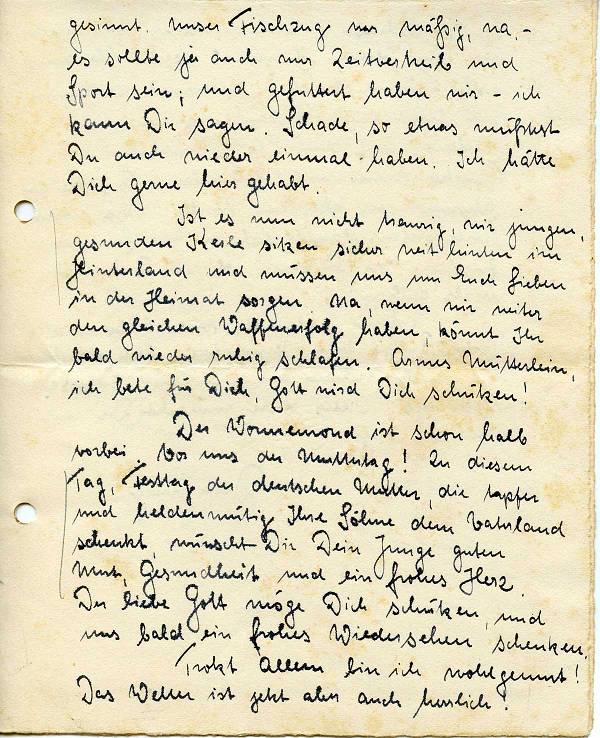 gesinnt. Unser Fischzug war mäßig, na, -
es sollte ja auch nur Zeitvertreib und
Sport sein; und gefuttert haben wir - ich
kann Dir sagen. Schade, so etwas müßtest
Du auch wieder einmal haben. Ich hätte
Dich gerne hier gehabt.
Ist es nun nicht traurig, wir jungen,
gesunden Kerle sitzen sicher weit hinten im
Hinterland und müssen uns um Euch Lieben
in der Heimat sorgen. Na, wenn wir weiter
den gleichen Waffenerfolg haben, könnt Ihr
bald wieder ruhig schlafen. Armes Mütterlein,
ich bete für Dich, Gott wird Dich schützen!
Der Wonnemond ist schon halb
vorbei. Vor uns der Muttertag! Zu diesem
Tag, Festtag der deutschen Mutter, die tapfer
und heldenmütig Ihre Söhne dem Vaterland
schenkt, wünscht Dir Dein Junge guten
Mut, Gesundheit und ein frohes Herz.
Der liebe Gott möge Dich schützen, und
uns bald ein frohes Wiedersehen schenken.
Trotz Allem bin ich wohlgemut!
Das Wetter ist jetzt aber auch herrlich!